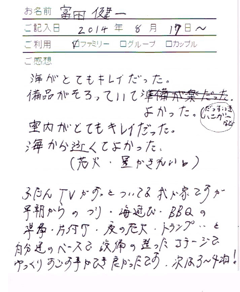 お名前 富田 健一
ご記入日 2014年 8月 17日〜
ご利用 ☑ファミリー □グループ □カップル
ご感想
海がとてもキレイだった。
備品がそろっていて準備が楽だった。
よかった。
室内がとてもキレイだった。
海から近くてよかった。
(花火・星がきれい)
ふだんTVがずっとついてる我が家ですが
早朝からのつり・海遊び・BBQの
準備・片付け・夜の花火・トランプ…と
自分達のペースで設備の整ったコテージで
ゆっくりすごす事ができ良かったです。次は3〜4泊!